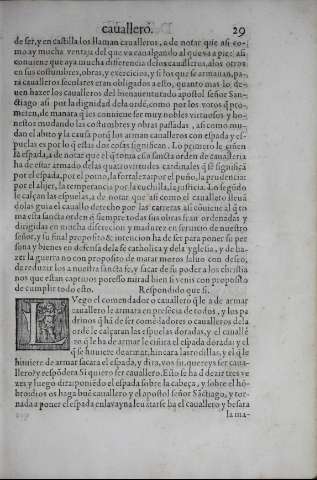 cauallero. 29
de ser, y en castilla los llaman caualleros, a denotar que asi co-
mo ay mucha ventaja del que va caualgando al que va a pie: asi
conuiene que aya mucha differencia de los caualleros, a los otros
en sus costumbres, obras, y exercicios, y si los que se arman, pa-
ra caualleros seculares eran obligados a esto, quanto mas lo de-
uen hazer los caualleros del bienauenturado apostol señor San-
ctiago asi por la dignidad dela ordē, como por los votos q̄ pro-
meten, de manera q̄ les conuiene ser muy nobles virtuosos y ho-
nestos mudando las costumbres y obras passadas, asi como mu-
dan el abito y la causa porq̄ los arman caualleros con espada y es-
puelas es por lo q̄ estas dos cosas significan. Lo primero le ciñen
la espada, a denotar que el q̄ toma esta sancta orden de caualleria
ha de estar armado delas quatro virtudes cardinales q̄ se significā
por el espada, por el pomo, la fortaleza: por el puño, la prudencia:
por el aljer, la temperancia: por la cuchilla, la justicia. Lo segūdo
le calçan las espuelas, a denotar que asi como el cauallero lleuā
dolas guia el cauallo derecho por las carreras asi cōuiene al q̄ to
ma esta sancta orden q̄ siempre todas sus obras sean ordenadas y
dirigidas en mucha discrecion y madurez en seruicio de nuestro
señor, y su final proposito & intencion ha de ser para poner su per
sona y bienes en defensa dela fe catholica y dela yglesia, y de ha-
zer la guerra no con proposito de matar moros saluo con deseo,
de reduzir los a nuestra sancta fe, y sacar de su poder a los christia
nos que estan captiuos por esso mirad bien si venis con proposito
de cumplir todo esto. Respondido que si.
LVego el comendador o cauallero q̄ le a de armar
cauallero le armara en presēcia de todos, y los pa
drinos q̄ hā de ser comēdadores o caualleros dela
orde le calçaran las espuelas doradas, y el caualle
ro q̄ le ha de armar le ciñira el espada dorada: y el
q̄ se huuiere de armar, hincara las rodillas, y el q̄ le
huuiere de armar sacara el espada, y dira, vos fu. quereys ser caua-
llero? y respōdera Si quiero ser cauallero. Esto se ha d̄ dezir tres ve
zes y luego dira poniēdo el espada sobre la cabeça, y sobre el hō-
bro dios os haga buē cauallero y el apostol señor Sāctiago, y tor-
nada a poner el espada en la vayna leuātarse ha el cauallero y besara
la ma-